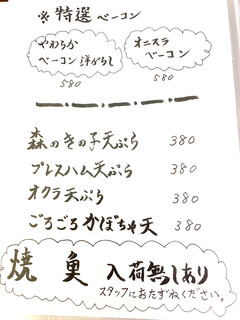 ※特選ベーコン
やわらか
ベーコン洋がらし
580
オニスラ
ベーコン
580
森のきの子天ぷら 380
プレスハム天ぷら 380
オクラ天ぷら 380
ごろごろかぼちゃ天 380
焼魚 入荷無しあり
スタッフにおたずねください。